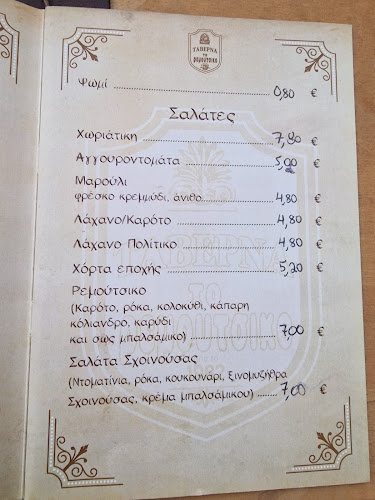 ΤΑΒΕΡΝΑ
το
ρεμούτσικο
Ψωμί 0,80 €
Σαλάτες
Χωριάτικη 7,80 €
Αγγουροντομάτα 5,00 €
Μαρούλι
φρέσκο κρεμμύδι, άνιθο 4,80 €
Λάχανο/Καρότο 4,80 €
Λάχανο Πολίτικο 4,80 €
Χόρτα εποχής 5,20 €
Ρεμούτσικο
(Καρότο, ρόκα, κολοκύθι, κάπαρη
κόλιανδρο, καρύδι
και σως μπαλσάμικο) 7,00 €
Σαλάτα Σχοινούσας
(Ντοματίνια, ρόκα, κουκουνάρι, ξινομυζήθρα
Σχοινούσας, κρέμα μπαλσάμικου) 7,00 €
ΤΑΒΕΡΝΑ
το
ρεμούτσικο